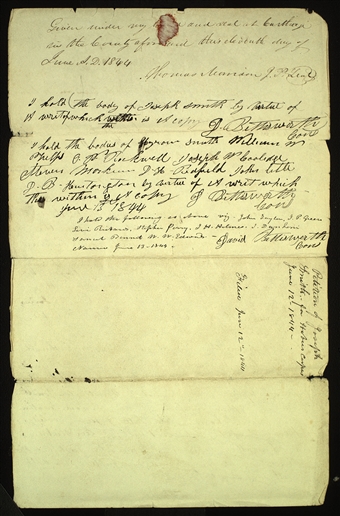 Given under my hand and seal at Carthage
in the County aforesaid this eleventh day of
June A.D. 1844
Thomas Morrison J.P.
I hold the body of Joseph Smith by virtue of
A writ of which within is A copy
the
D Bettisworth
Cons
I hold the bodies of Hyrum Smith William W
Phelps Rockwell Joseph W Coolidge
Stevens Markham Redfield John Lytle
by virtue of A writ which
the within is A copy D Bettisworth
June 13 1844 Cons
I hold the following as above viz. John Taylor, J P Green
Levi Richards, Stephen Perry, Holmes,
Samuel Bennett W. W. Edwards David Bettisworth
Nauvoo June 13 1844 Cons
Petition of Joseph
Smith for Habeas Corpus
June 12 1844
Filed June 12th 1844